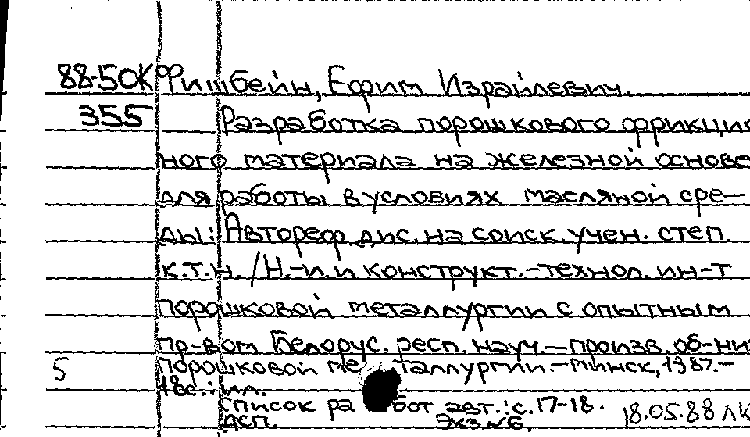 88-50К Фишбейн, Ефим Израилевич.
355 Разработка порошкового фрикцион
ного материала на железной основе
для работы в условиях масляной сре-
ды: Автореф. дис. на соиск. учен. степ.
к.т.н. /Н.-и. и конструкт.-технол. ин-т
порошковой металлургии с опытным
пр-вом Белорус. респ. науч.-произв. об-ни
5 порошковой металлургии.-Минск, 1987.-
18с.: ил.
Список работ авт.: с.17-18. 18.05.88 ЛК
ДСП. Экз.№6.